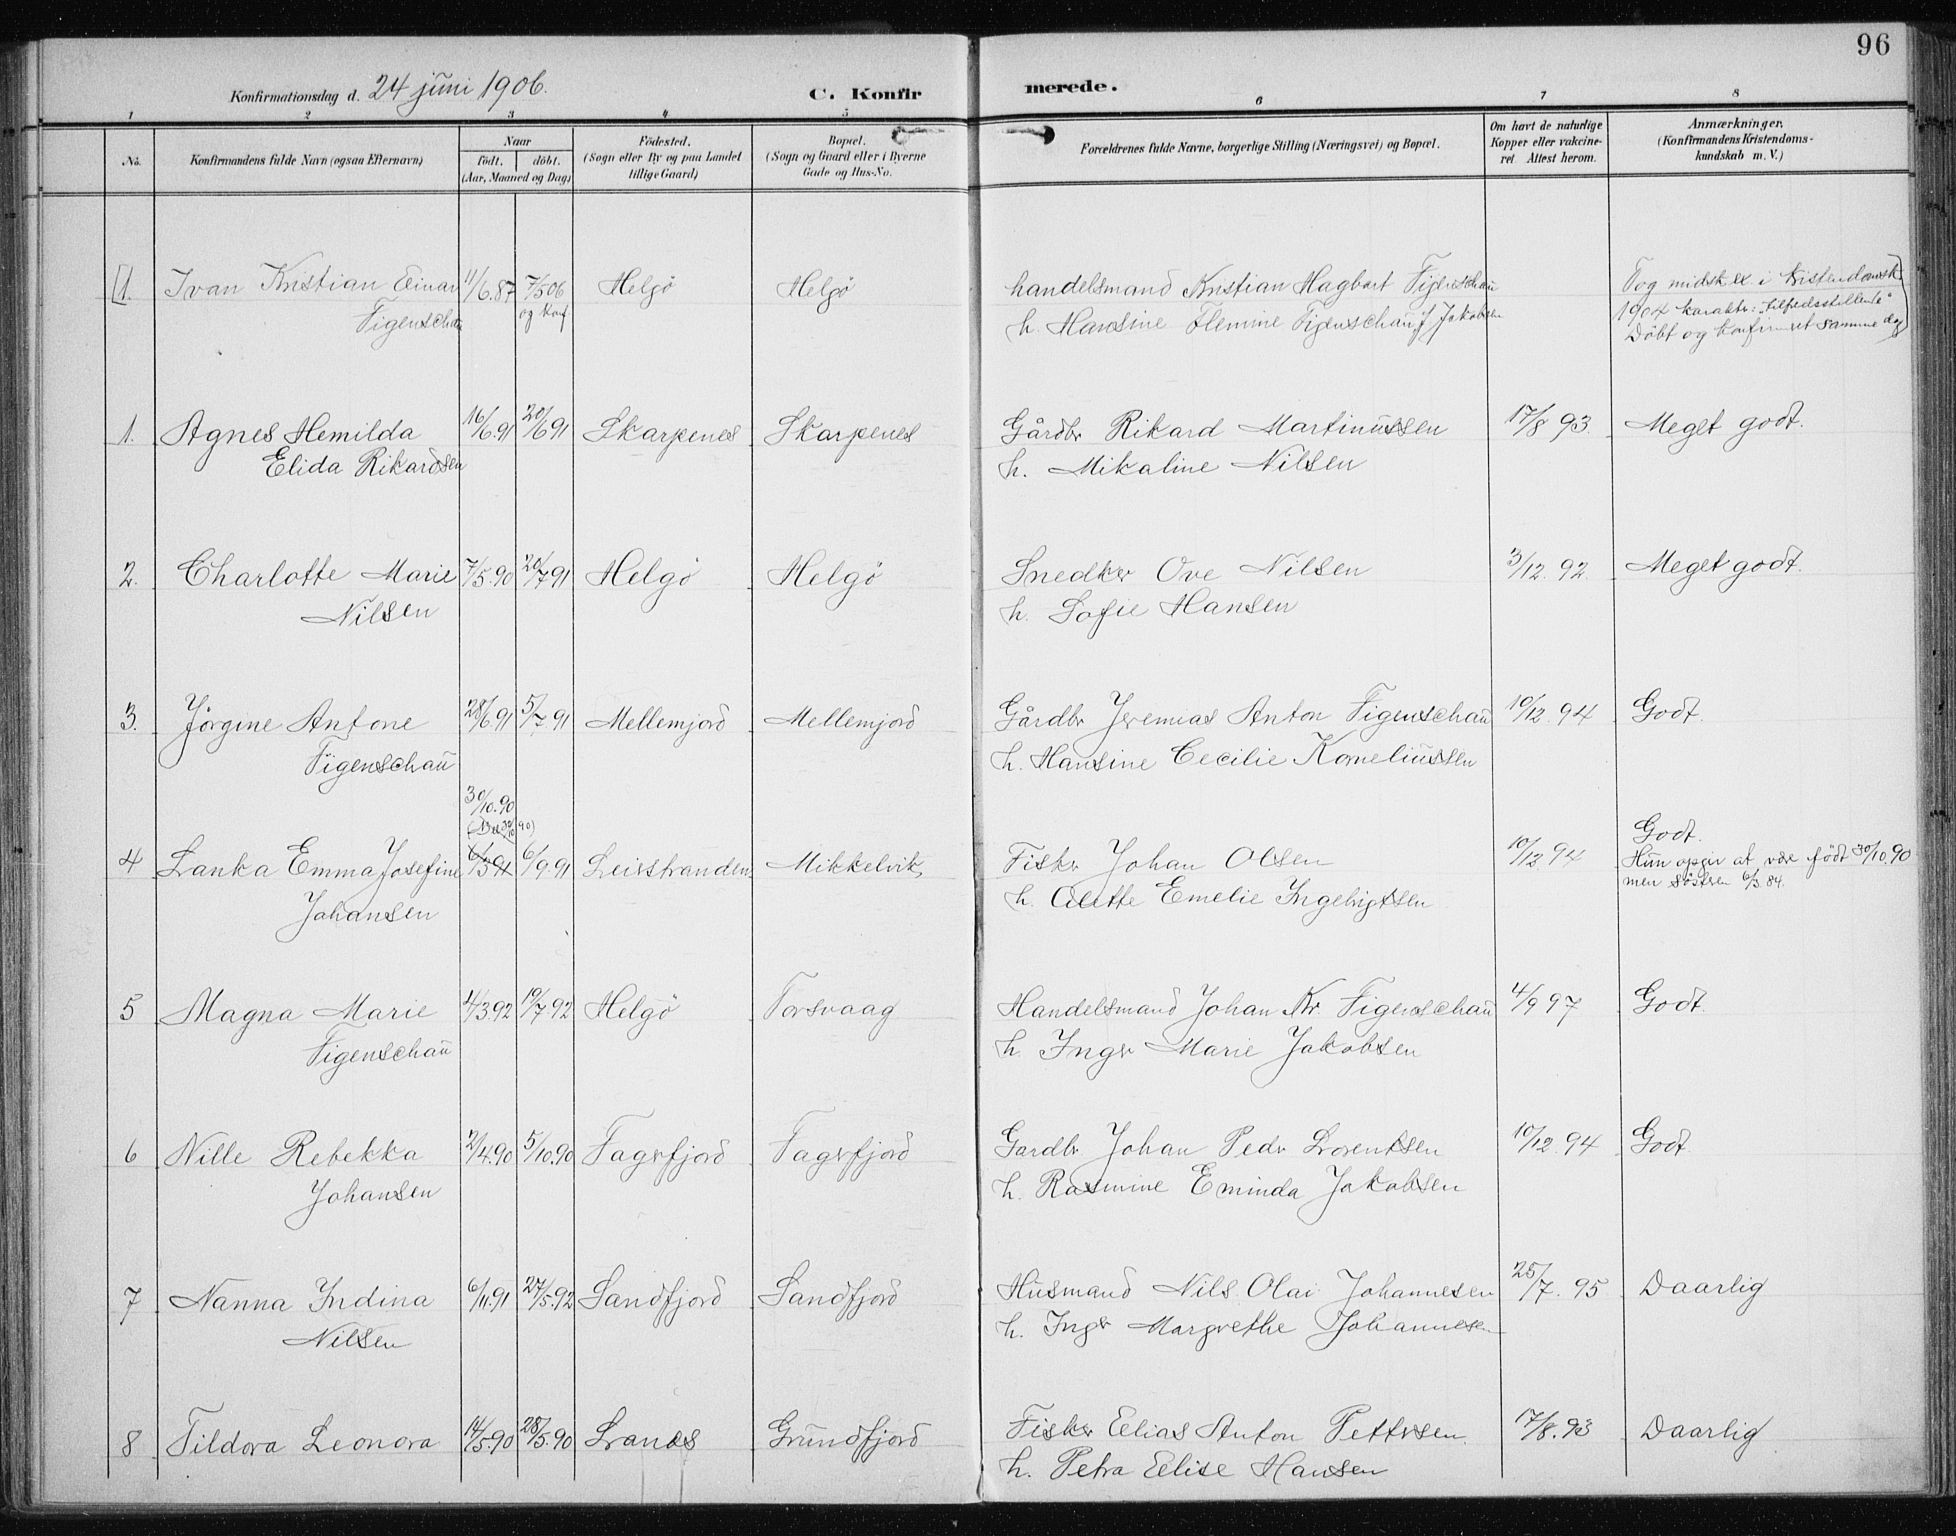 96
Konfirmationsdag d. 24 juni 1906.
C. Konfirmerede.
1 2 3 4 5 6 7 8
No.
Konfirmandens fulde Navn (ogsaa Efternavn)
Naar
født. døbt.
(Aar, Maaned og Dag)
Fødested.
(Sogn eller By og paa Landet
tillige Gaard)
Bopæl.
(Sogn og Gaard eller i Byerne
Gade og Hus-No.
Forældrenes fulde Navne, borgerlige Stilling (Næringsvei) og Bopæl.
Om havt de naturlige
Kopper eller vakcine-
ret Attest herom.
Anmærkninger.
(Konfirmandens Kristendoms-
kundskab m. V.)
[1. Ivan Kristian Einar 11/6.87 7/5 06 Helgö Helgö handelsmand Kristian Hagbart Figenschau Tog midsk ex i Kristendomsk.
Figenschau og Konf h. Hansine Flemine Figenschau f Jakobsen 1904 karakter: "tilfredsstillende"
Döbt og konfirmeret samme dag
1. Agnes Hemilda 16/6.91 20/6 91 Skarpenes Skarpenes Gårdbr Rikard Martinussen 17/8 93. Meget godt.
Elida Rikardsen h. Mikaline Nilsen
2. Charlotte Marie 7/5.90 20/7 91 Helgö Helgö Snedker Ove Nilsen 3/12. 92. Meget godt.
Nilsen h. Sofie Hansen
3. Jörgine Antone 28/6.91 5/7 91 Mellemjord Mellemjord Gårdbr Jeremias Anton Figenschau 10/12. 94 Godt.
Figenschau h. Hansine Cecilie Korneliussen
30/10.90
4 Lanka Emma Josefine 6/3 91 6/9.91 Leirstranden Mikkelvik Fisker Johan Olsen 10/12 94 Godt.
Johansen h. Alette Emelie Ingebrigtsen Hun opgir at være født 30/10.90
men söstren 6/3.84.
5 Magna Marie 4/3.92 10/7.92 Helgö Torsvaag Handelsmand Johan Kr. Figenschau 4/9 97 Godt.
Figenschau h. Inger Marie Jakobsen
6 Nille Rebekka 2/4.90 5/10.90 Fagerfjord Fagerfjord Gardbr Johan Peder Lorentsen 10/12. 94 Godt
Johansen h. Rasmine Eminda Jakobsen
7 Nanna Indina 6/11.91 27/5.92 Sandfjord Sandfjord Husmand Nils Olai Johannesen 25/7. 95 Daarlig
Nilsen h. Inger Margrethe Johannesen
8 Tildora Leonora 14/5.90 28/5.90 Grundfjord Fisker Elias Anton Pettersen 17/8.93 Daarlig
h. Petra Elise Hansen